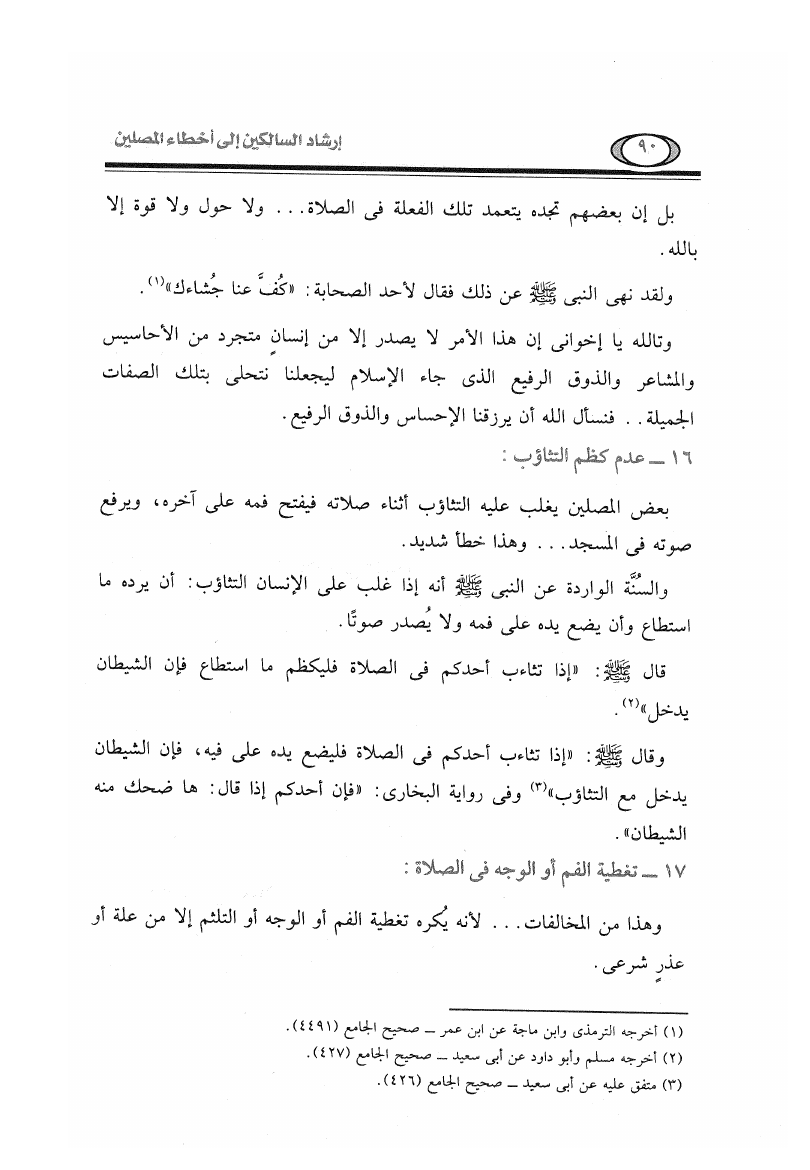 ٩٠
إرشاد السالكين إلى أخطاء المصلين
بل إن بعضهم تجده يتعمد تلك الفعلة فى الصلاة... ولا حول ولا قوة إلا
بالله.
ولقد نهى النبى ﷺ عن ذلك فقال لأحد الصحابة: «كُفَّ عنا جُشاءك»(١).
وتالله يا إخوانى إن هذا الأمر لا يصدر إلا من إنسانٍ متجرد من الأحاسيس
والمشاعر والذوق الرفيع الذى جاء الإسلام ليجعلنا نتحلى بتلك الصفات
الجميلة.. فنسأل الله أن يرزقنا الإحساس والذوق الرفيع.
١٦ ــ عدم كظم التثاؤب :
بعض المصلين يغلب عليه التثاؤب أثناء صلاته فيفتح فمه على آخره، ويرفع
صوته فى المسجد... وهذا خطأ شديد.
والسُنَّة الواردة عن النبى ﷺ أنه إذا غلب على الإنسان التثاؤب: أن يرده ما
استطاع وأن يضع يده على فمه ولا يُصدر صوتًا.
قال ﷺ: «إذا تثاءب أحدكم فى الصلاة فليكظم ما استطاع فإن الشيطان
يدخل»(٢).
وقال ﷺ: «إذا تثاءب أحدكم فى الصلاة فليضع يده على فيه، فإن الشيطان
يدخل مع التثاؤب»(٣) وفى رواية البخارى: «فإن أحدكم إذا قال: ها ضحك منه
الشيطان».
١٧ ــ تغطية الفم أو الوجه فى الصلاة :
وهذا من المخالفات... لأنه يُكره تغطية الفم أو الوجه أو التلثم إلا من علة أو
عذرٍ شرعى.
(١) أخرجه الترمذى وابن ماجة عن ابن عمر ــ صحيح الجامع (٤٤٩١).
(٢) أخرجه مسلم وأبو داود عن أبى سعيد ــ صحيح الجامع (٤٢٧).
(٣) متفق عليه عن أبى سعيد ــ صحيح الجامع (٤٢٦).